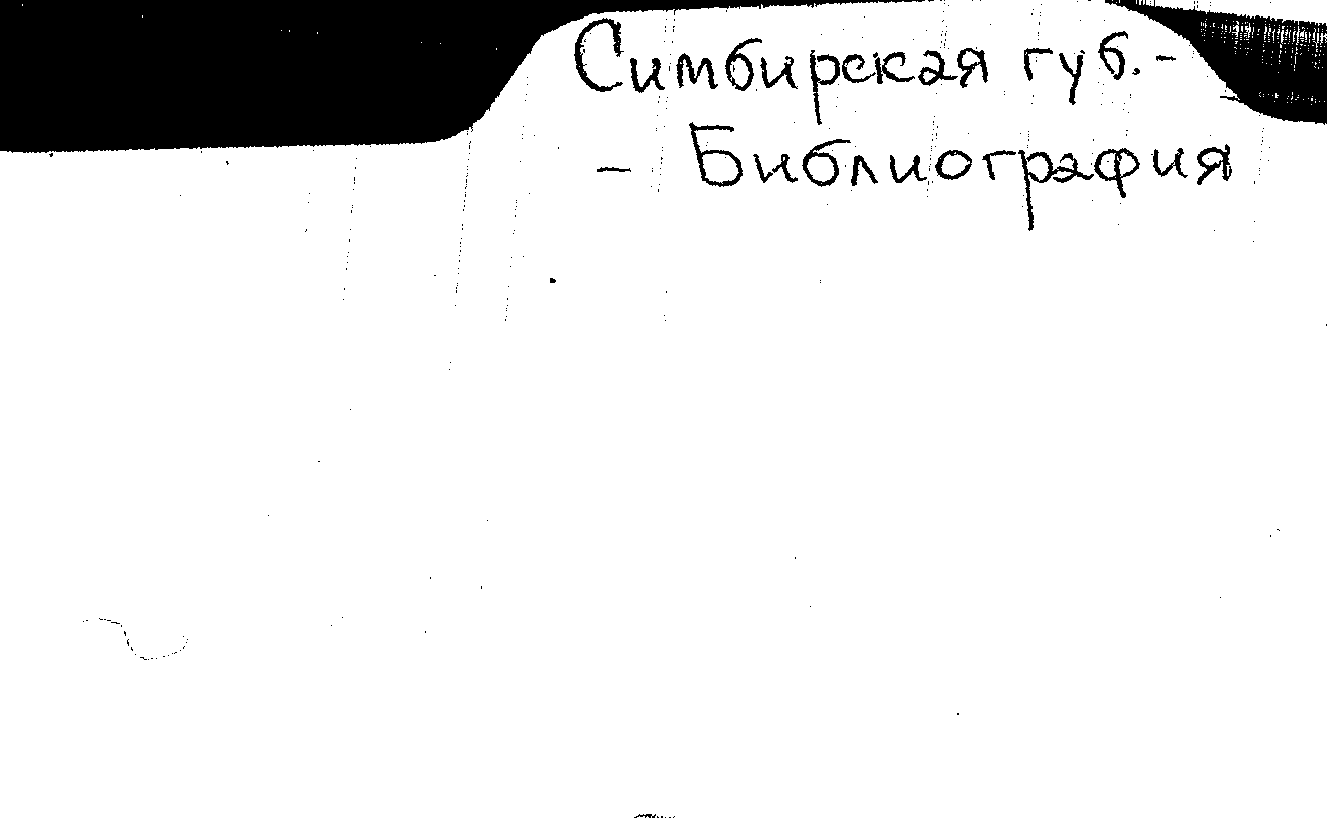 Симбирская губ. -
- Библиография